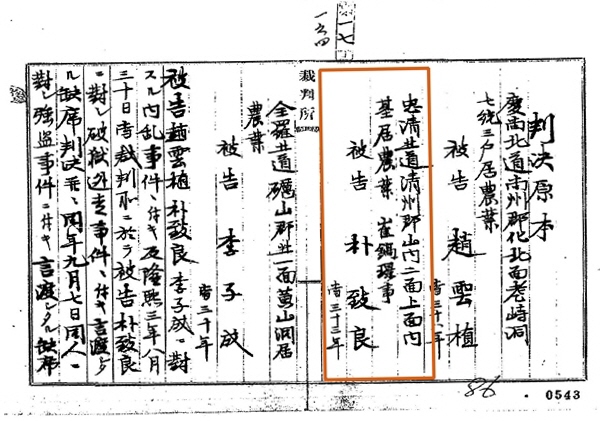 判決原本
慶尚北道尚州郡化北面老峙洞
七統三戸居農業
被告 趙雲植
当三十八年
忠清北道清州郡山内二面上面内
基居農業 崔鍋瑾事
被告 朴致良
当三十三年
裁判所
全羅北道礪山郡北一面黄山洞居
農業
被告 李子成
当三十年
被告趙雲植朴致良李子成ニ對
スル内乱事件ニ付キ及隆熙三年八月
三十日当裁判所ニ於テ被告朴致良
ニ對シ破獄逃走事件ニ付キ言渡シタ
ル缺席判決並ニ同年九月七日同人ニ
對シ強盗事件ニ付キ言渡シタル缺席
86
0543